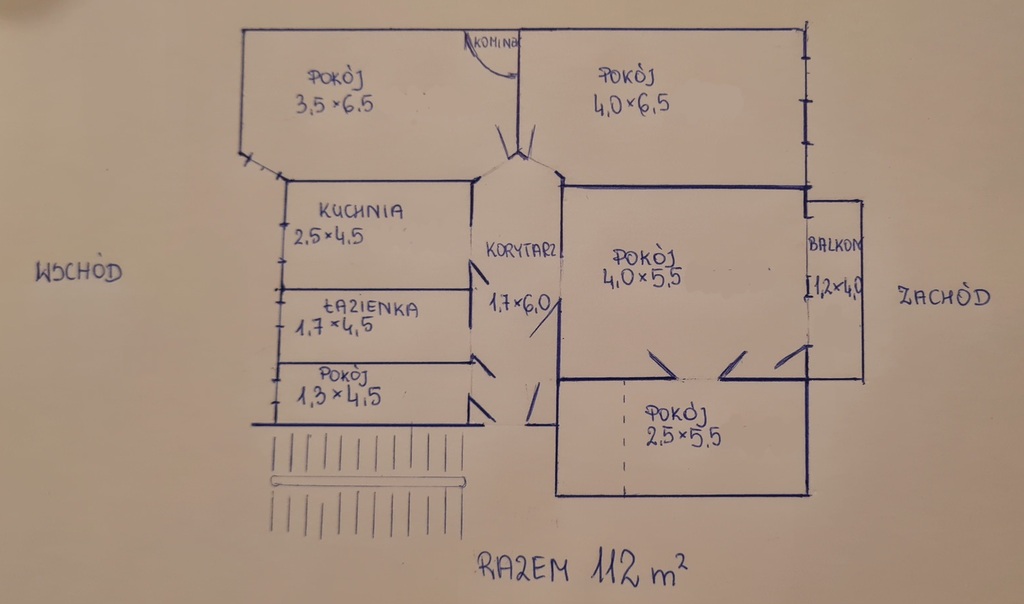 KOMINEK
POKÓJ
3,5×6.5
POKÓJ
4,0×6,5
KUCHNIA
2.5×4.5
KORYTARZ
1,7×6,0
POKÓJ
4,0×5,5
BALKON
1,2×4,0
WSCHÓD
ZACHÓD
ŁAZIENKA
1,7×4,5
POKÓJ
1,3×4,5
POKÓJ
2,5×5,5
RAZEM 112 m²